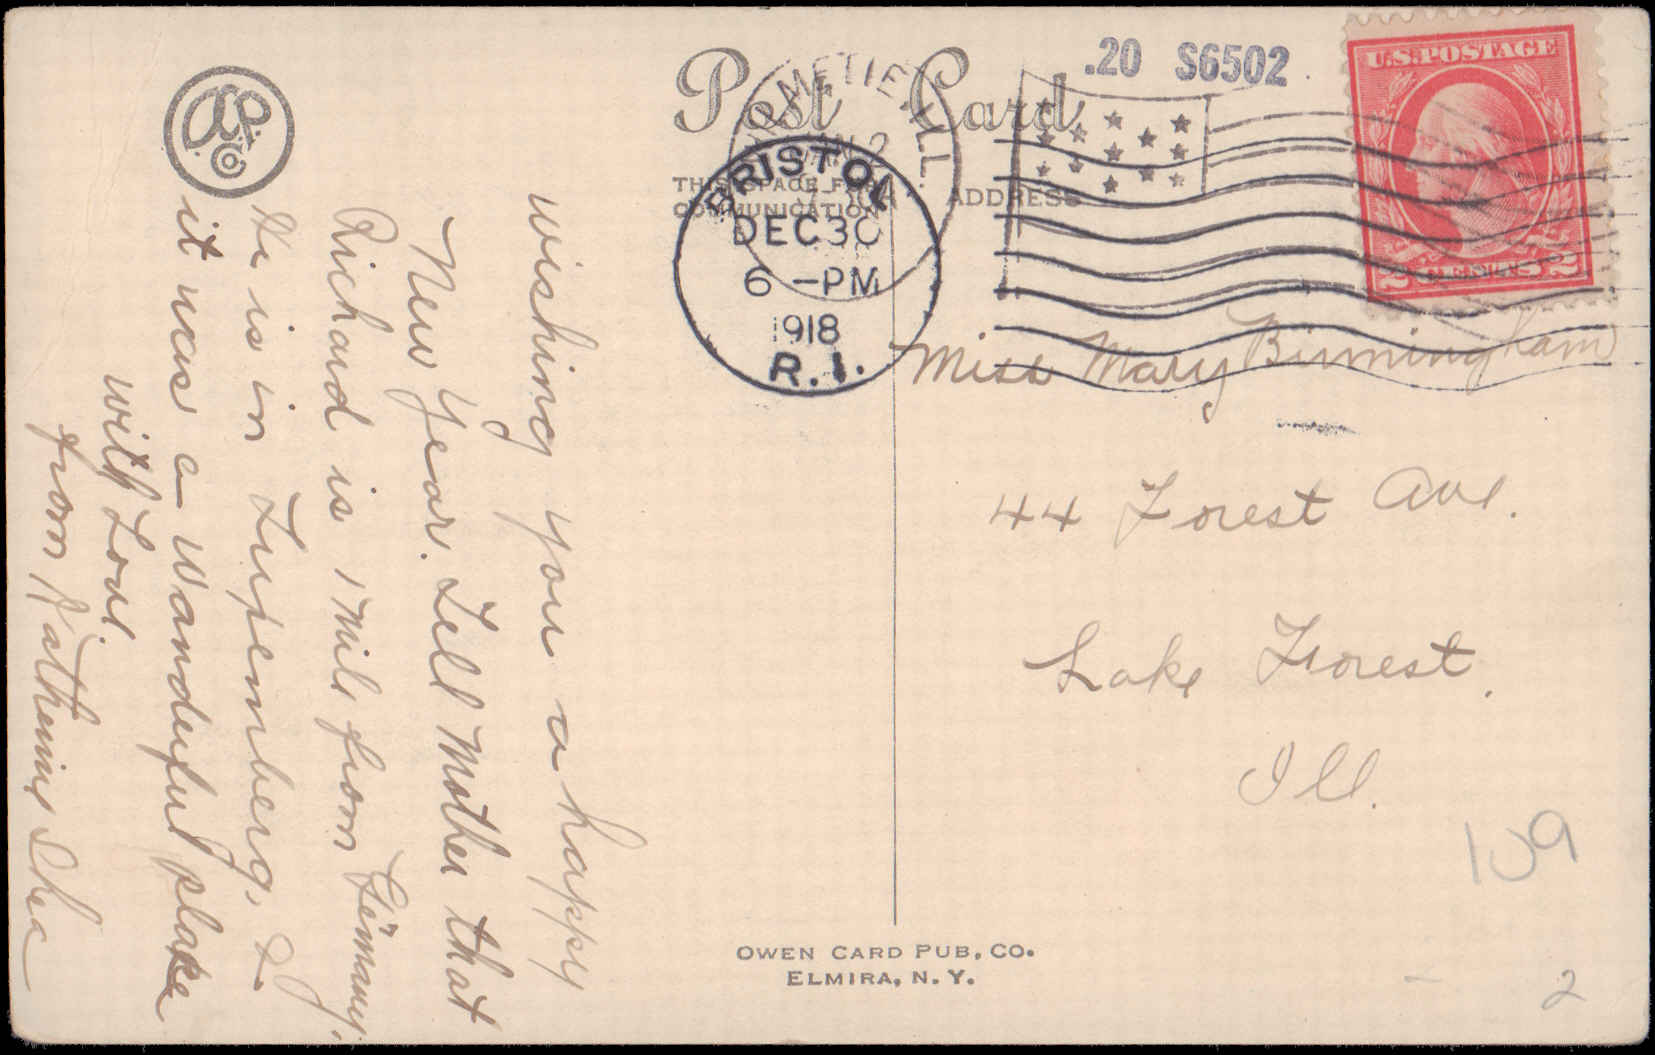 .20 S6502
U.S.POSTAGE
2 CENTS 2
Post Card
THIS SPACE FOR
COMMUNICATION
ADDRESS
ILL.
JAN 2
BRISTOL
DEC 30
6 -PM
1918
R.I.
O.C.P.
Co
Wishing you a happy
New Year. Tell Mother that
Richard is 1 mile from Germany,
He is in Luxemberg, &
it was a wanderful plake
with Love.
from Katherine Shea
Miss Mary Birmingham
44 Forest Ave.
Lake Forest.
Ill.
109
2
OWEN CARD PUB. CO.
ELMIRA, N. Y.